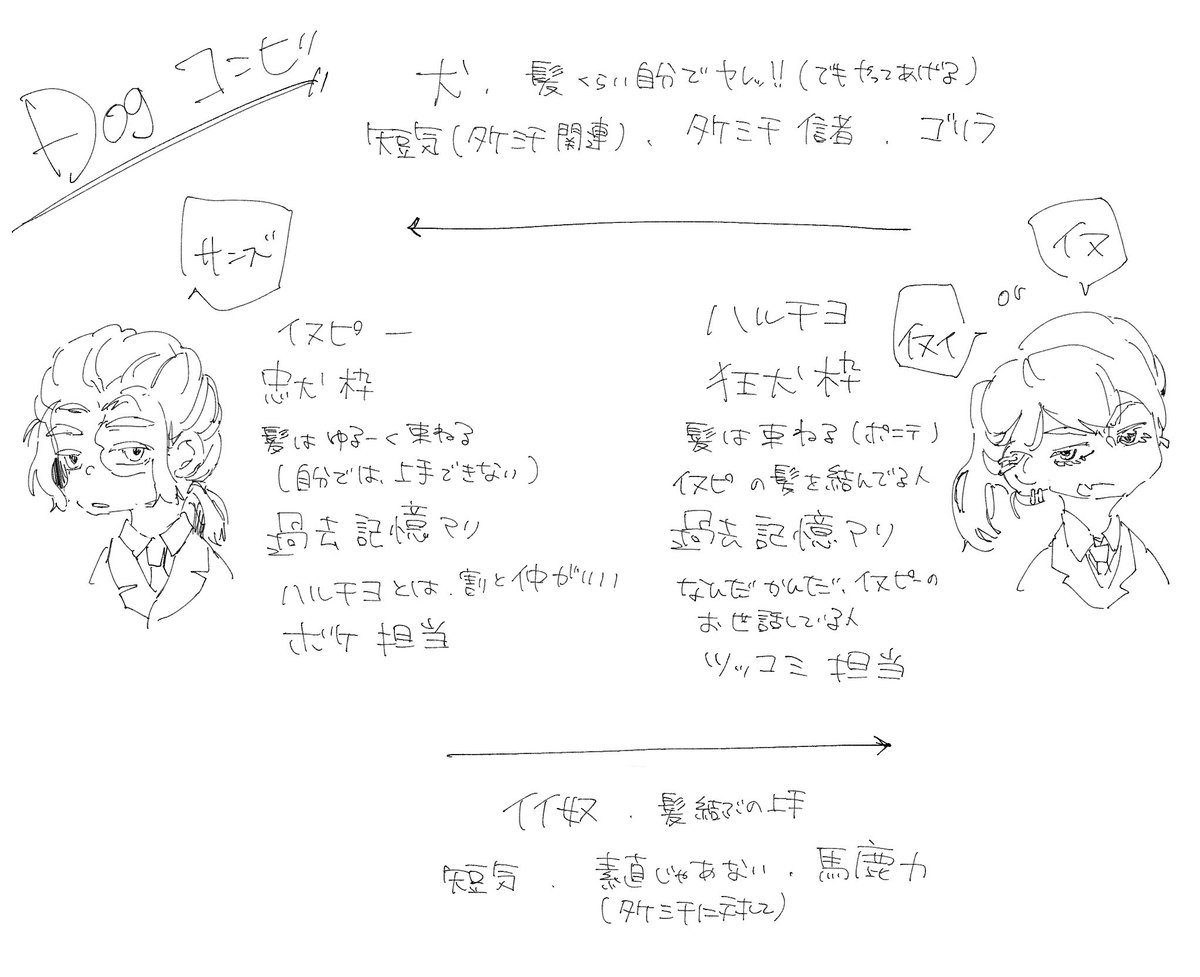 Dog コンビ
犬、髪くらい自分でヤレッ!!(でもやってあげる)
短気(タケミチ関連)、タケミチ信者、ゴリラ
サンズ
イヌピー
忠犬枠
髪はゆる〜く束ねる
(自分では、上手できない)
過去記憶アリ
ハルチヨとは、割と仲がいい
ボケ担当
イヌ
or
イヌイ
ハルチヨ
狂犬枠
髪は束ねる(ポニテ)
イヌピの髪を結んでる人
過去記憶アリ
なんだかんだ、イヌピーの
お世話している人
ツッコミ担当
イイ奴、髪結ぶの上手
短気、素直じゃあない、馬鹿力
(タケミチに対して)